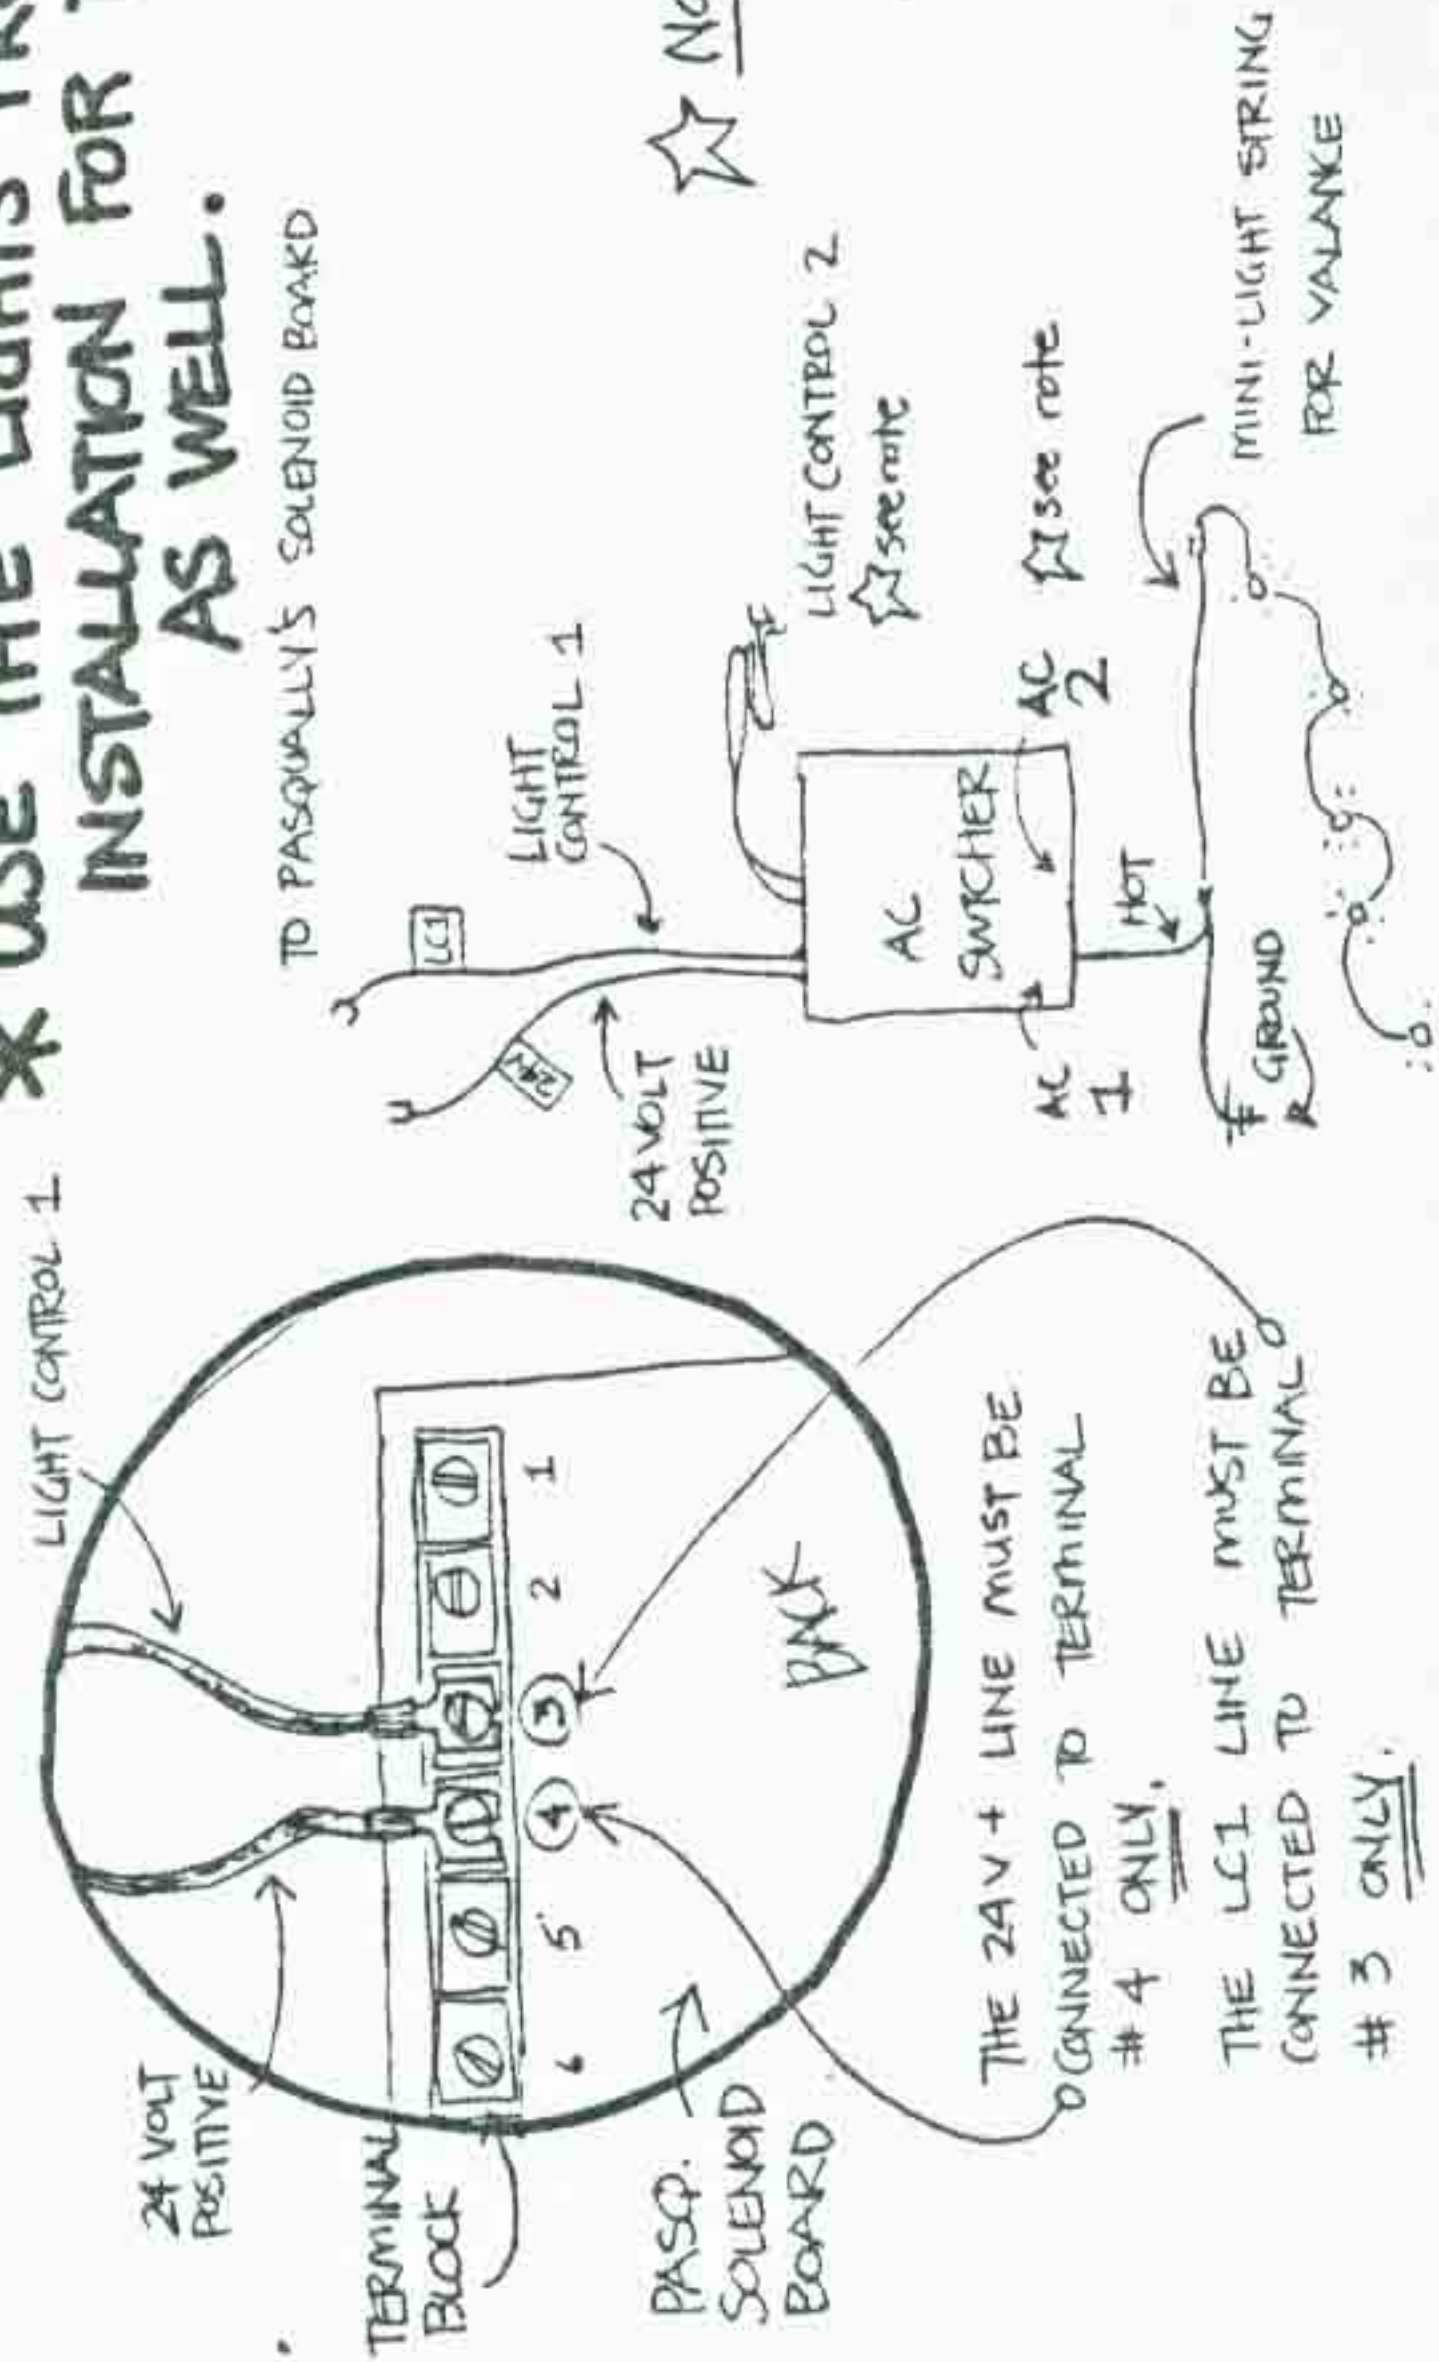 * USE THE LIGHTS
INSTALLATION FOR
AS WELL.
LIGHT CONTROL 1
24 VOLT
POSITIVE
TERMINAL
BLOCK
6 5 4 3 2 1
PASQ.
SOLENOID
BOARD
BACK
THE 24V + LINE MUST BE
CONNECTED TO TERMINAL
# 4 ONLY.
THE LC1 LINE MUST BE
CONNECTED TO TERMINAL
# 3 ONLY.
TO PASQUALLY'S SOLENOID BOARD
LC1
24V
LIGHT
CONTROL 1
24 VOLT
POSITIVE
LIGHT CONTROL 2
see note
AC
SWTCHER
AC
1
AC
2
see note
HOT
GROUND
MINI-LIGHT STRING
FOR VALANCE